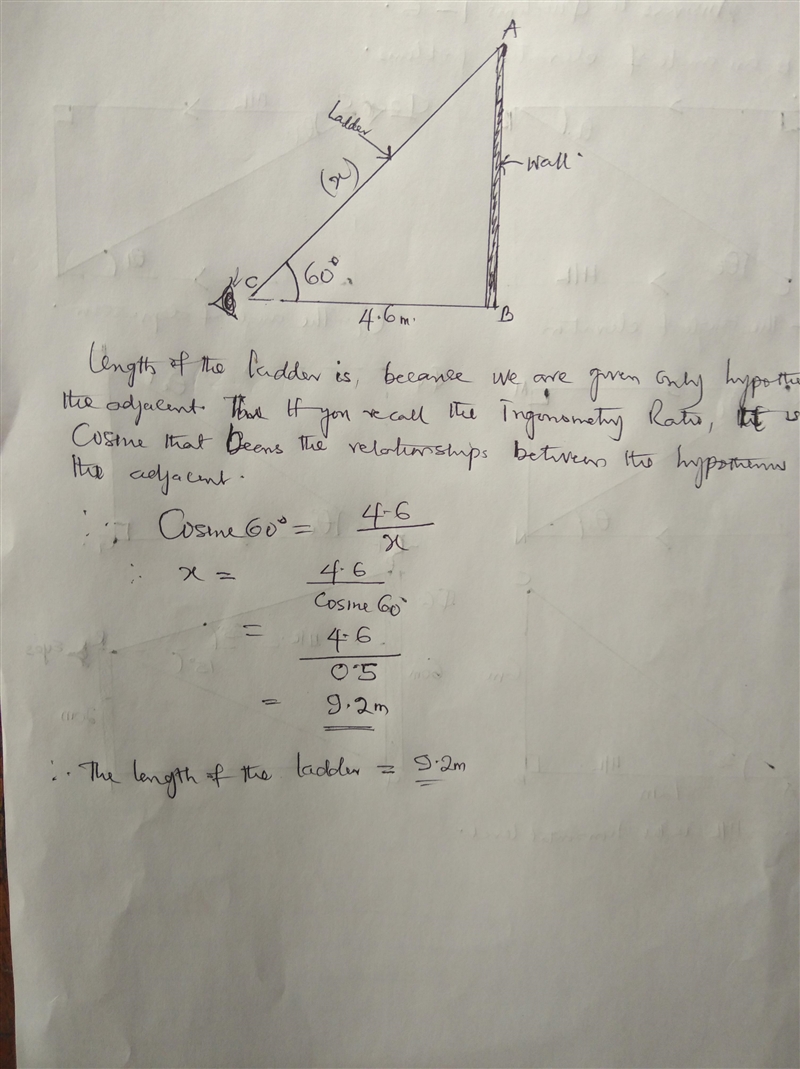 A
Ladder
(x)
Wall
C
60°
4.6m.
B
Length of the ladder is, because we are given only
the adjacent. If you recall the Trigonometry Ratio, is
Cosine that bears the relationships between the
the adjacent.
∵ Cosine 60° = 4.6
x
∴ x = 4.6
Cosine 60°
= 4.6
0.5
= 9.2m
∴ The length of the ladder = 9.2m